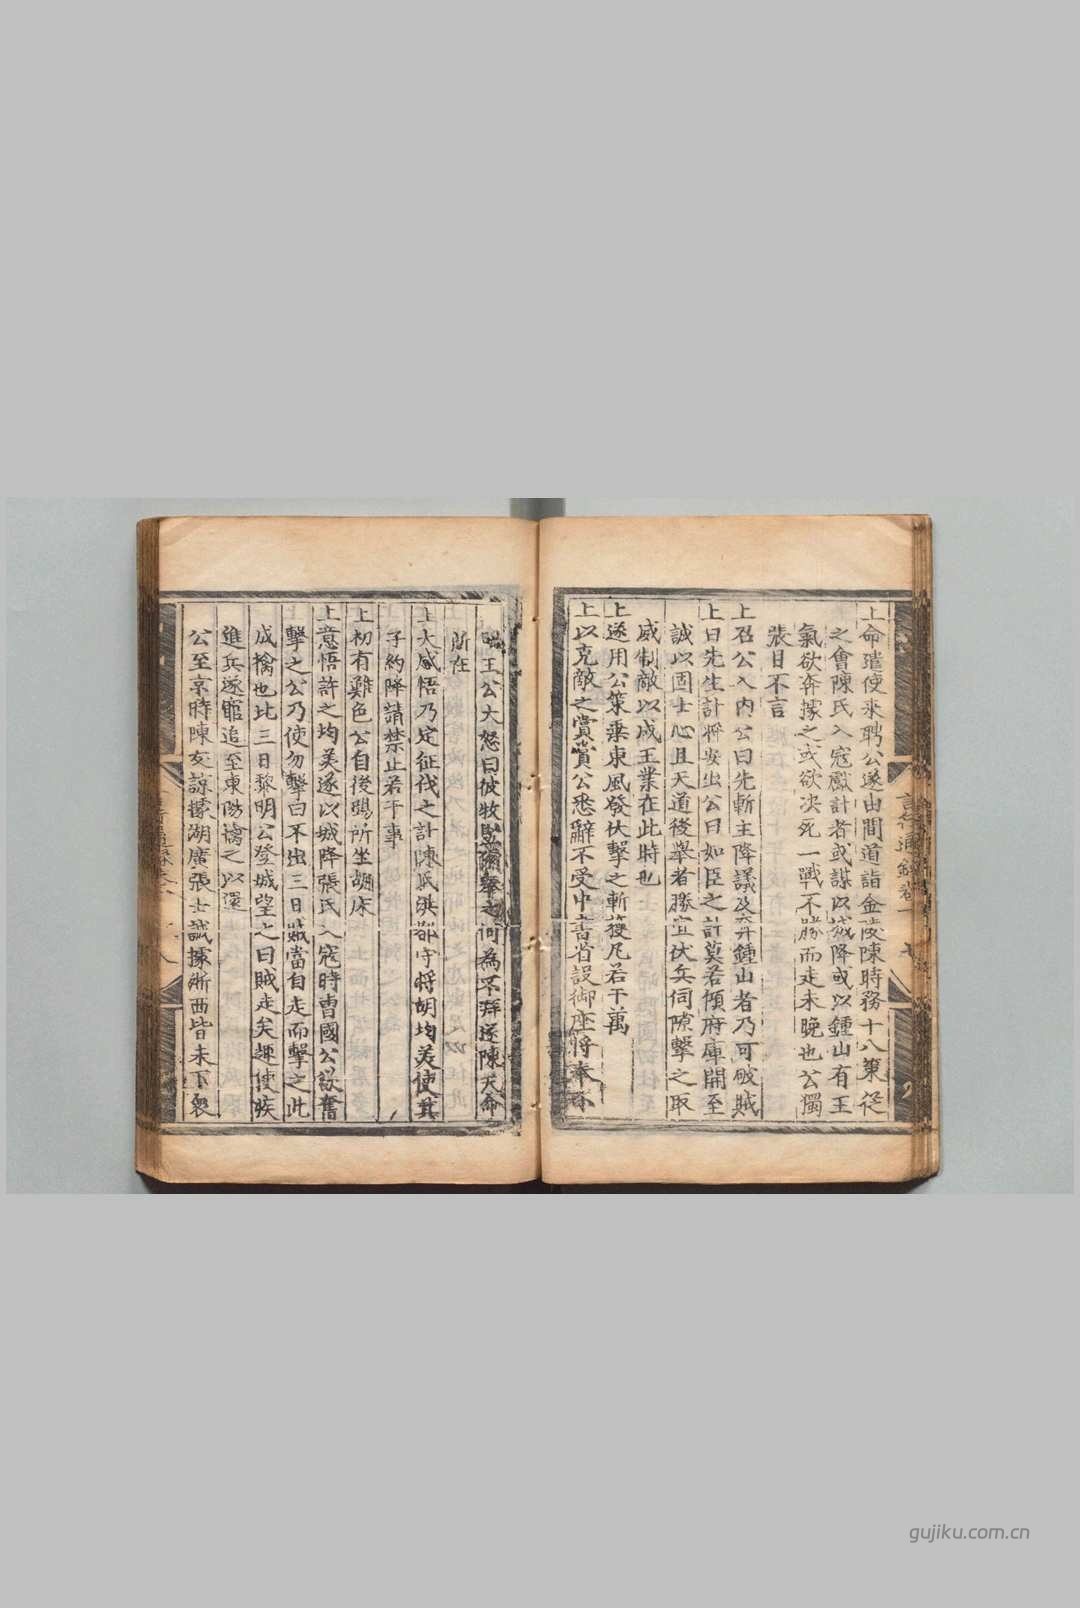 上命遣使来聘公遂由間道詣金陵陳時務十八策従
之會陳氏入寇獻計者或謀以城降或以鍾山有王
氣欲奔據之或欲决死一戰不勝而走未晩也公獨
張目不言
上召公入内公曰先斬主降議及奔鍾山者乃可破賊
上曰先生計將安出公曰如臣之計莫若傾府庫開至
誠以固士心且天道後舉者勝宜伏兵伺隙擊之取
威制敵以成王業在此時也
上遂用公策乗東風發伏擊之斬獲凡若干萬
上以克敵之賞賞公悉辭不受中書省設御座將奉
王公大怒曰彼牧竪爾奉之何為不拜遂陳天命
所在
上大感悟乃定征伐之計陳氏洪都守將胡均美使其
子約降請禁止若干事
上初有難色公自後踢所坐胡床
上意悟許之均美遂以城降張氏入寇時曺國公欲奮
擊之公乃使勿擊曰不出三日賊當自走而擊之此
成擒也比三日黎明公登城望之曰賊走矣趣使疾
進兵遂追至東陽擒之以還
公至京時陳友諒據湖廣張士誠據浙西皆未下衆
gujiku.com.cn